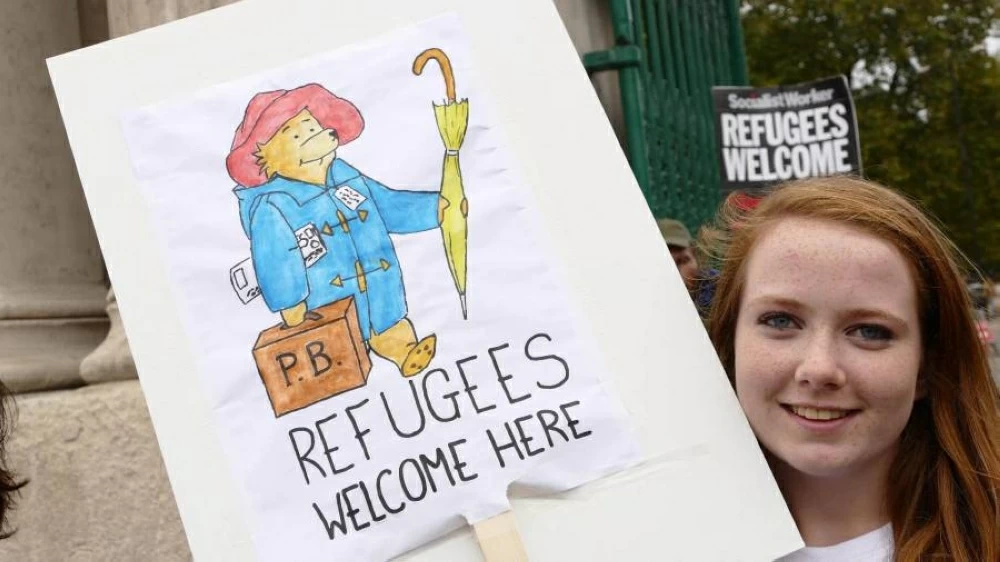 P.B.
REFUGEES
WELCOME HERE
Socialist Worker
REFUGEES
WELCOME